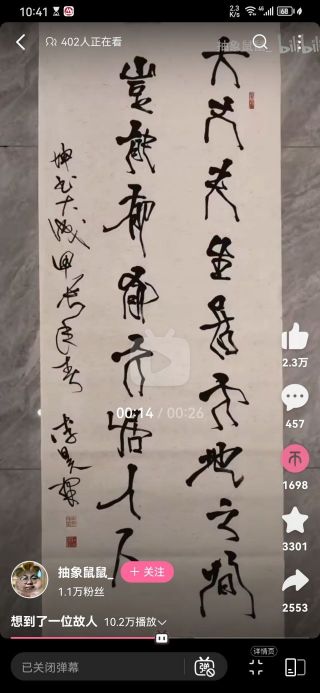 10:41
2.3 K/s
68
402人正在看
抽象鼠鼠_ bilibili
大丈夫生居天地之間
豈能郁郁久居人下
甲辰年春
00:14 / 00:26
2.3万
457
1698
3301
2553
抽象鼠鼠_
+ 关注
1.1万粉丝
想到了一位故人 10.2万播放
已关闭弹幕
弹
详情页